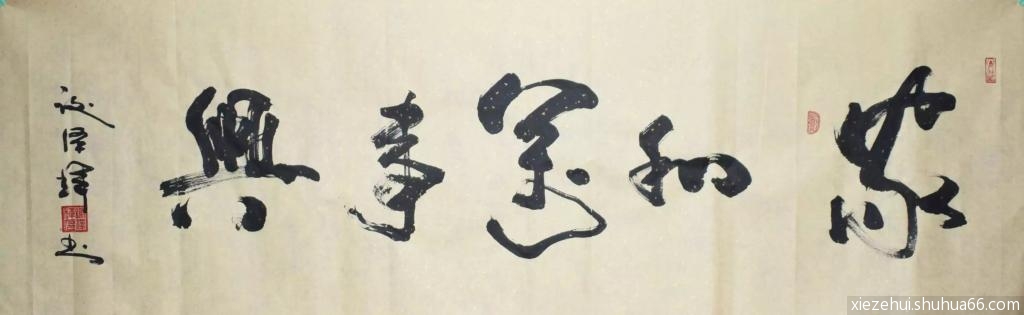 家和萬事興
謝澤輝
书
xiezehui.shuhua66.com